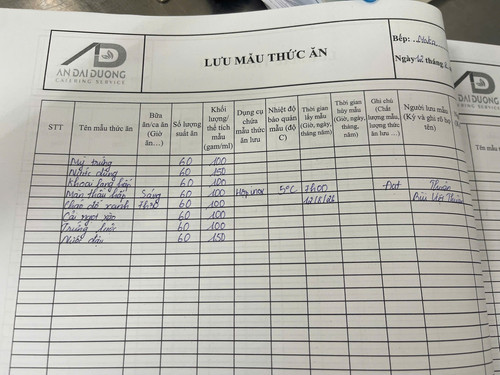 AN DAI DUONG
CATERING SERVICE
LƯU MẪU THỨC ĂN
Bếp:
Ngày tháng
STT
Tên mẫu thức ăn
Bữa ăn/ca ăn (Giờ ăn…)
Số lượng suất ăn
Khối lượng/ thể tích mẫu (gam/ml)
Dụng cụ chứa mẫu thức ăn lưu
Nhiệt độ bảo quản mẫu (độ C)
Thời gian lấy mẫu (Giờ, ngày, tháng năm)
Thời gian hủy mẫu (Giờ, ngày, tháng, năm)
Ghi chú (Chất lượng mẫu, lượng thức ăn lưu …)
Người lưu mẫu (Ký và ghi rõ họ tên)
Mỳ trứng 60 100
Nước dùng 60 150
Khoai lang hấp 60 100
Màn thầu hấp Sáng 60 100 Hộp inox 5°C 7h00 Đạt Thuận
Cháo đỗ xanh 7h30 60 100 Bùi
Cải ngọt xào 60 100
Trứng luộc 60 100
Nước đậu 60 150
AN DAI DUONG
CATERING SERVICE
STT
Tên mẫu thức